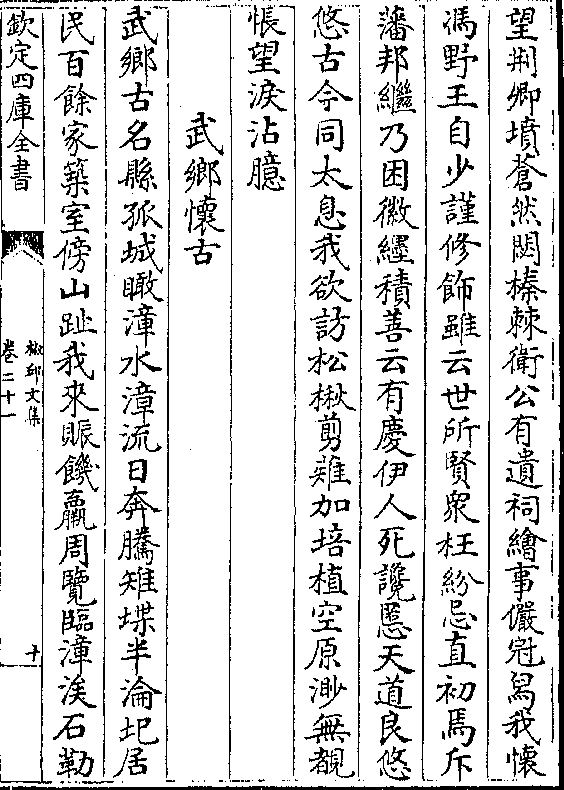 望荆卿墳蒼然閟榛棘衛公有遺祠繪事儼冠舄我懷
馮野王自少謹修飾雖云世所賢衆枉紛忌直初焉斥
藩邦繼乃困徽纆積善云有慶伊人死讒慝天道良悠
悠古今同太息我欲訪松楸剪薙加培植空原渺無覩
悵望淚沾臆
武鄉懷古
武鄉古名縣孤城瞰漳水漳流日奔騰雉堞半淪圯居
民百餘家築室傍山趾我來賑饑羸周覽臨漳涘石勒
欽定四庫全書
椒邱文集
卷二十一
十